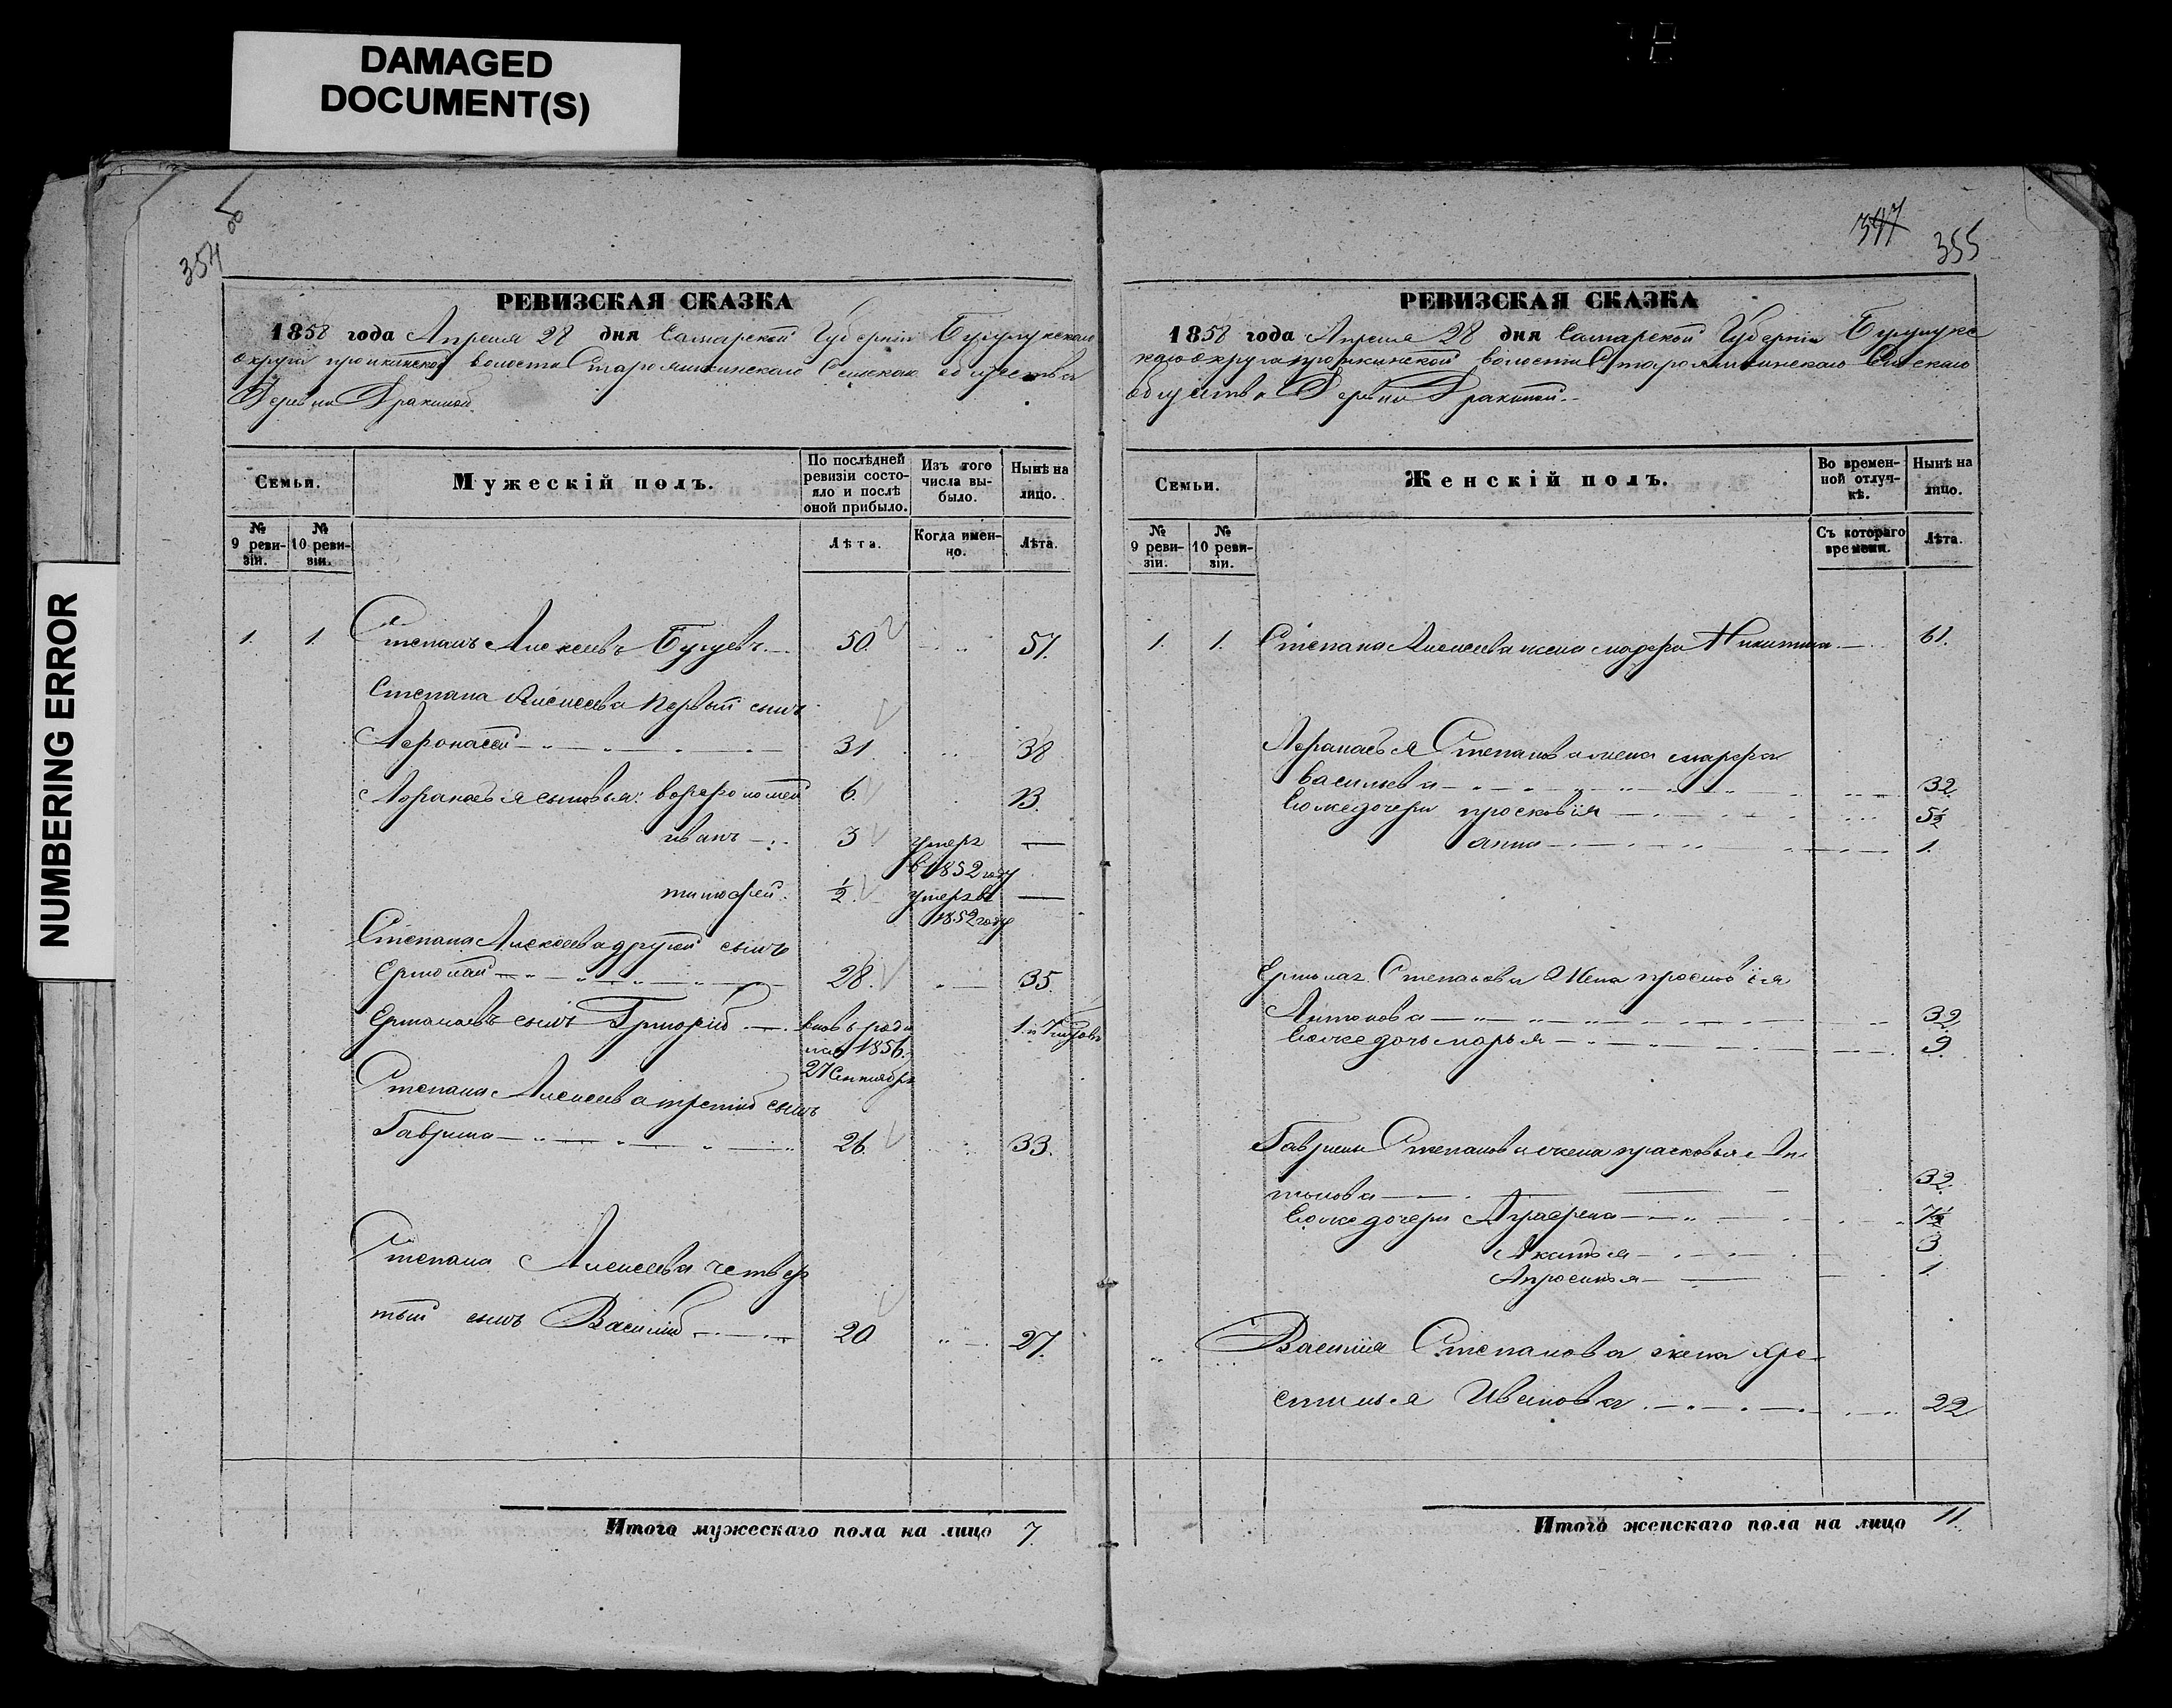 DAMAGED
DOCUMENT(S)
NUMBERING ERROR
354 об
РЕВИЗСКАЯ СКАЗКА
1858 года Апреля 28 дня Самарской Губернии Бузулукскаго
округа волости Сельскаго общества
Деревни Дракиной
Семьи.
Мужескій полъ.
По послѣдней ревизіи состояло и послѣ оной прибыло.
Изъ того числа выбыло.
Нынѣ на лицо.
№ 9 ревизіи.
№ 10 ревизіи.
Лѣта.
Когда именно.
Лѣта.
1. 1. Степанъ Алексеевъ 50. 51.
Степана Алексеева первый сынъ
Афонасей 31 38
Афанасья сыновья: ворфоломей 6. 13.
иванъ 3 умеръ
в 1852 году
тимофей ½ умеръ в
1852 году
Степана Алексеева другой сынъ
Ермолай 28. 35.
Ермолаевъ сынъ Григорій вновь роди
1856.
27 Сентября
Степана Алексеева третий сынъ
Гаврила 26. 33.
Степана Алексеева четвер
тый сынъ Василий 20 27.
Итого мужескаго пола на лицо 7.
347 355
РЕВИЗСКАЯ СКАЗКА
1858 года Апреля 28 дня Самарской Губернии Бузулукс
каго округа волости Сельскаго
общества Деревни Дракиной
Семьи.
Женскій полъ.
Во временной отлучкѣ.
Нынѣ на лицо.
№ 9 ревизіи.
№ 10 ревизіи.
Съ котораго времени.
Лѣта.
1. 1. Степана Алексеева жена марфа Никитина 61.
Афанасья Степанова жена марфа
васильева 32
Егоже дочери просковія 5½
анна 1.
Ермолая Степанова жена просковія
Антонова 32
Егоже дочь марья 9.
Гаврилы Степанова жена прасковья Ан
тонова 32.
Егоже дочери Аграфена 7½
3
1.
Василия Степанова жена хре
стинья Иванова 22
Итого женскаго пола на лицо 11.